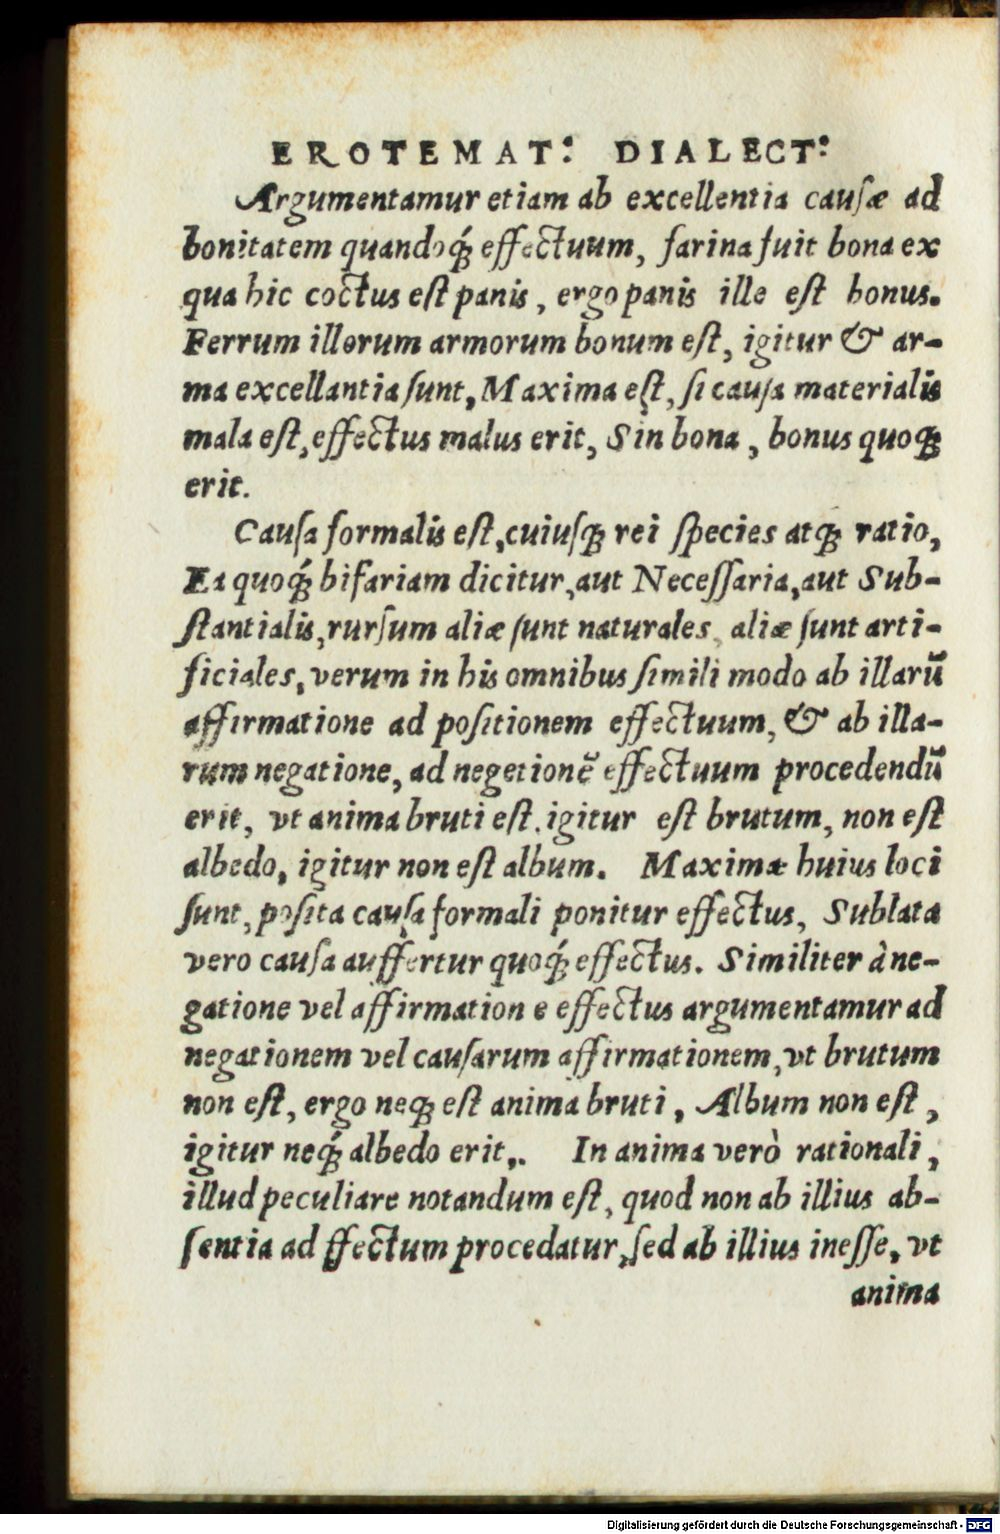 EROTEMAT: DIALECT:
Argumentamur etiam ab excellentia cauſæ ad
bonitatem quandoq́; effectuum, farina fuit bona ex
qua hic coctus eſt panis, ergo panis ille eſt bonus.
Ferrum illorum armorum bonum eſt, igitur & ar-
ma excellantia ſunt, Maxima eſt, ſi cauſa materialis
mala eſt, effectus malus erit, Sin bona, bonus quoq;
erit.
Cauſa formalis eſt, cuiuſq; rei ſpecies atq; ratio,
Ea quoq́; bifariam dicitur, aut Neceſſaria, aut Sub-
ſtantialis, rurſum aliæ ſunt naturales, aliæ ſunt arti-
ficiales, verum in his omnibus ſimili modo ab illarū
affirmatione ad poſitionem effectuum, & ab illa-
rum negatione, ad negetionē effectuum procedendū
erit, vt anima bruti eſt. igitur eſt brutum, non eſt
albedo, igitur non eſt album. Maximæ huius loci
ſunt, poſita cauſa formali ponitur effectus, Sublata
vero cauſa auffertur quoq́; effectus. Similiter à ne-
gatione vel affirmation e effectus argumentamur ad
negationem vel cauſarum affirmationem, vt brutum
non eſt, ergo neq; eſt anima bruti, Album non eſt,
igitur neq́; albedo erit,. In anima verò rationali,
illud peculiare notandum eſt, quod non ab illius ab-
ſentia ad ffectum procedatur, ſed ab illius ineſſe, vt
anima
Digitalisierung gefördert durch die Deutsche Forschungsgemeinschaft - DFG